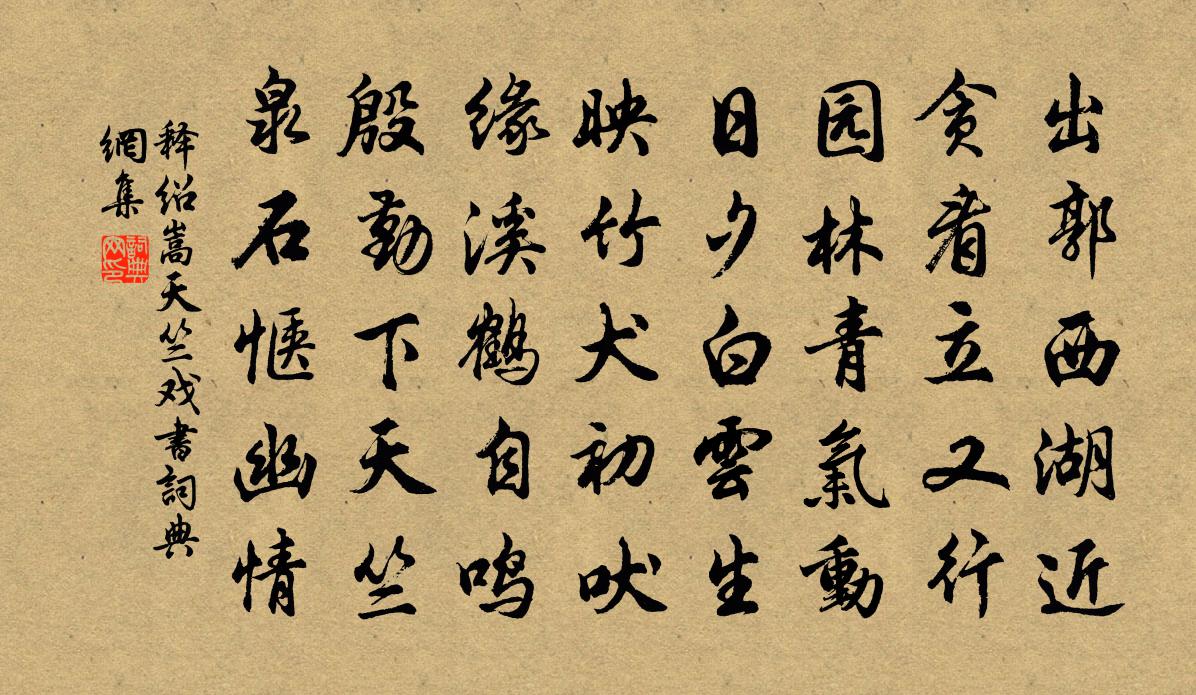 出郭西湖近
贪看立又行
园林青氣動
日夕白雲生
映竹犬初吠
缘溪鶴自鸣
殷勤下天竺
泉石惬幽情
释绍嵩天竺戏書詞典
網集
詞典网印